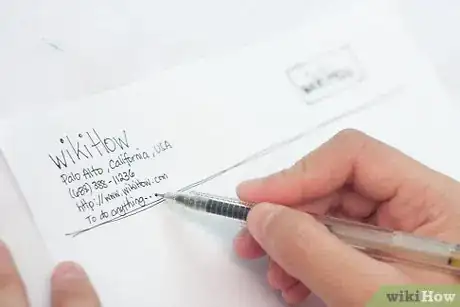 wikiHow
Palo Alto, California, USA
(685) 388-11236
http://www.wikihow.com
To do anything...
wikiHow